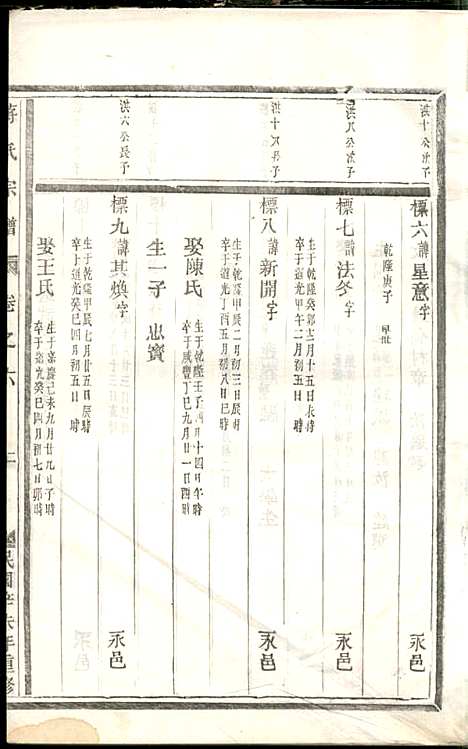 洪十公次子
標六諱星意字
乾隆庚子 早世
永邑
洪八公次子
標七諱法冬字
生于乾隆癸卯三月十五日辰時
卒于道光甲午二月初五日時
永邑
洪十八公長子
標八諱新開字
生于乾隆甲辰二月初三日辰時
卒于道光丁酉五月初八日巳時
永邑
娶陳氏
生于乾隆壬子四月十四日午時
卒于咸豐丁巳九月廿一日酉時
生一子 忠實
洪六公長子
標九諱其煥字
生于乾隆甲辰七月廿五日辰時
卒于道光癸巳四月初五日時
永邑
娶王氏
生于嘉慶己未九月廿九日子時
卒于道光癸巳四月初七日卯時
蔣氏宗譜
卷之六
民國辛未年重修